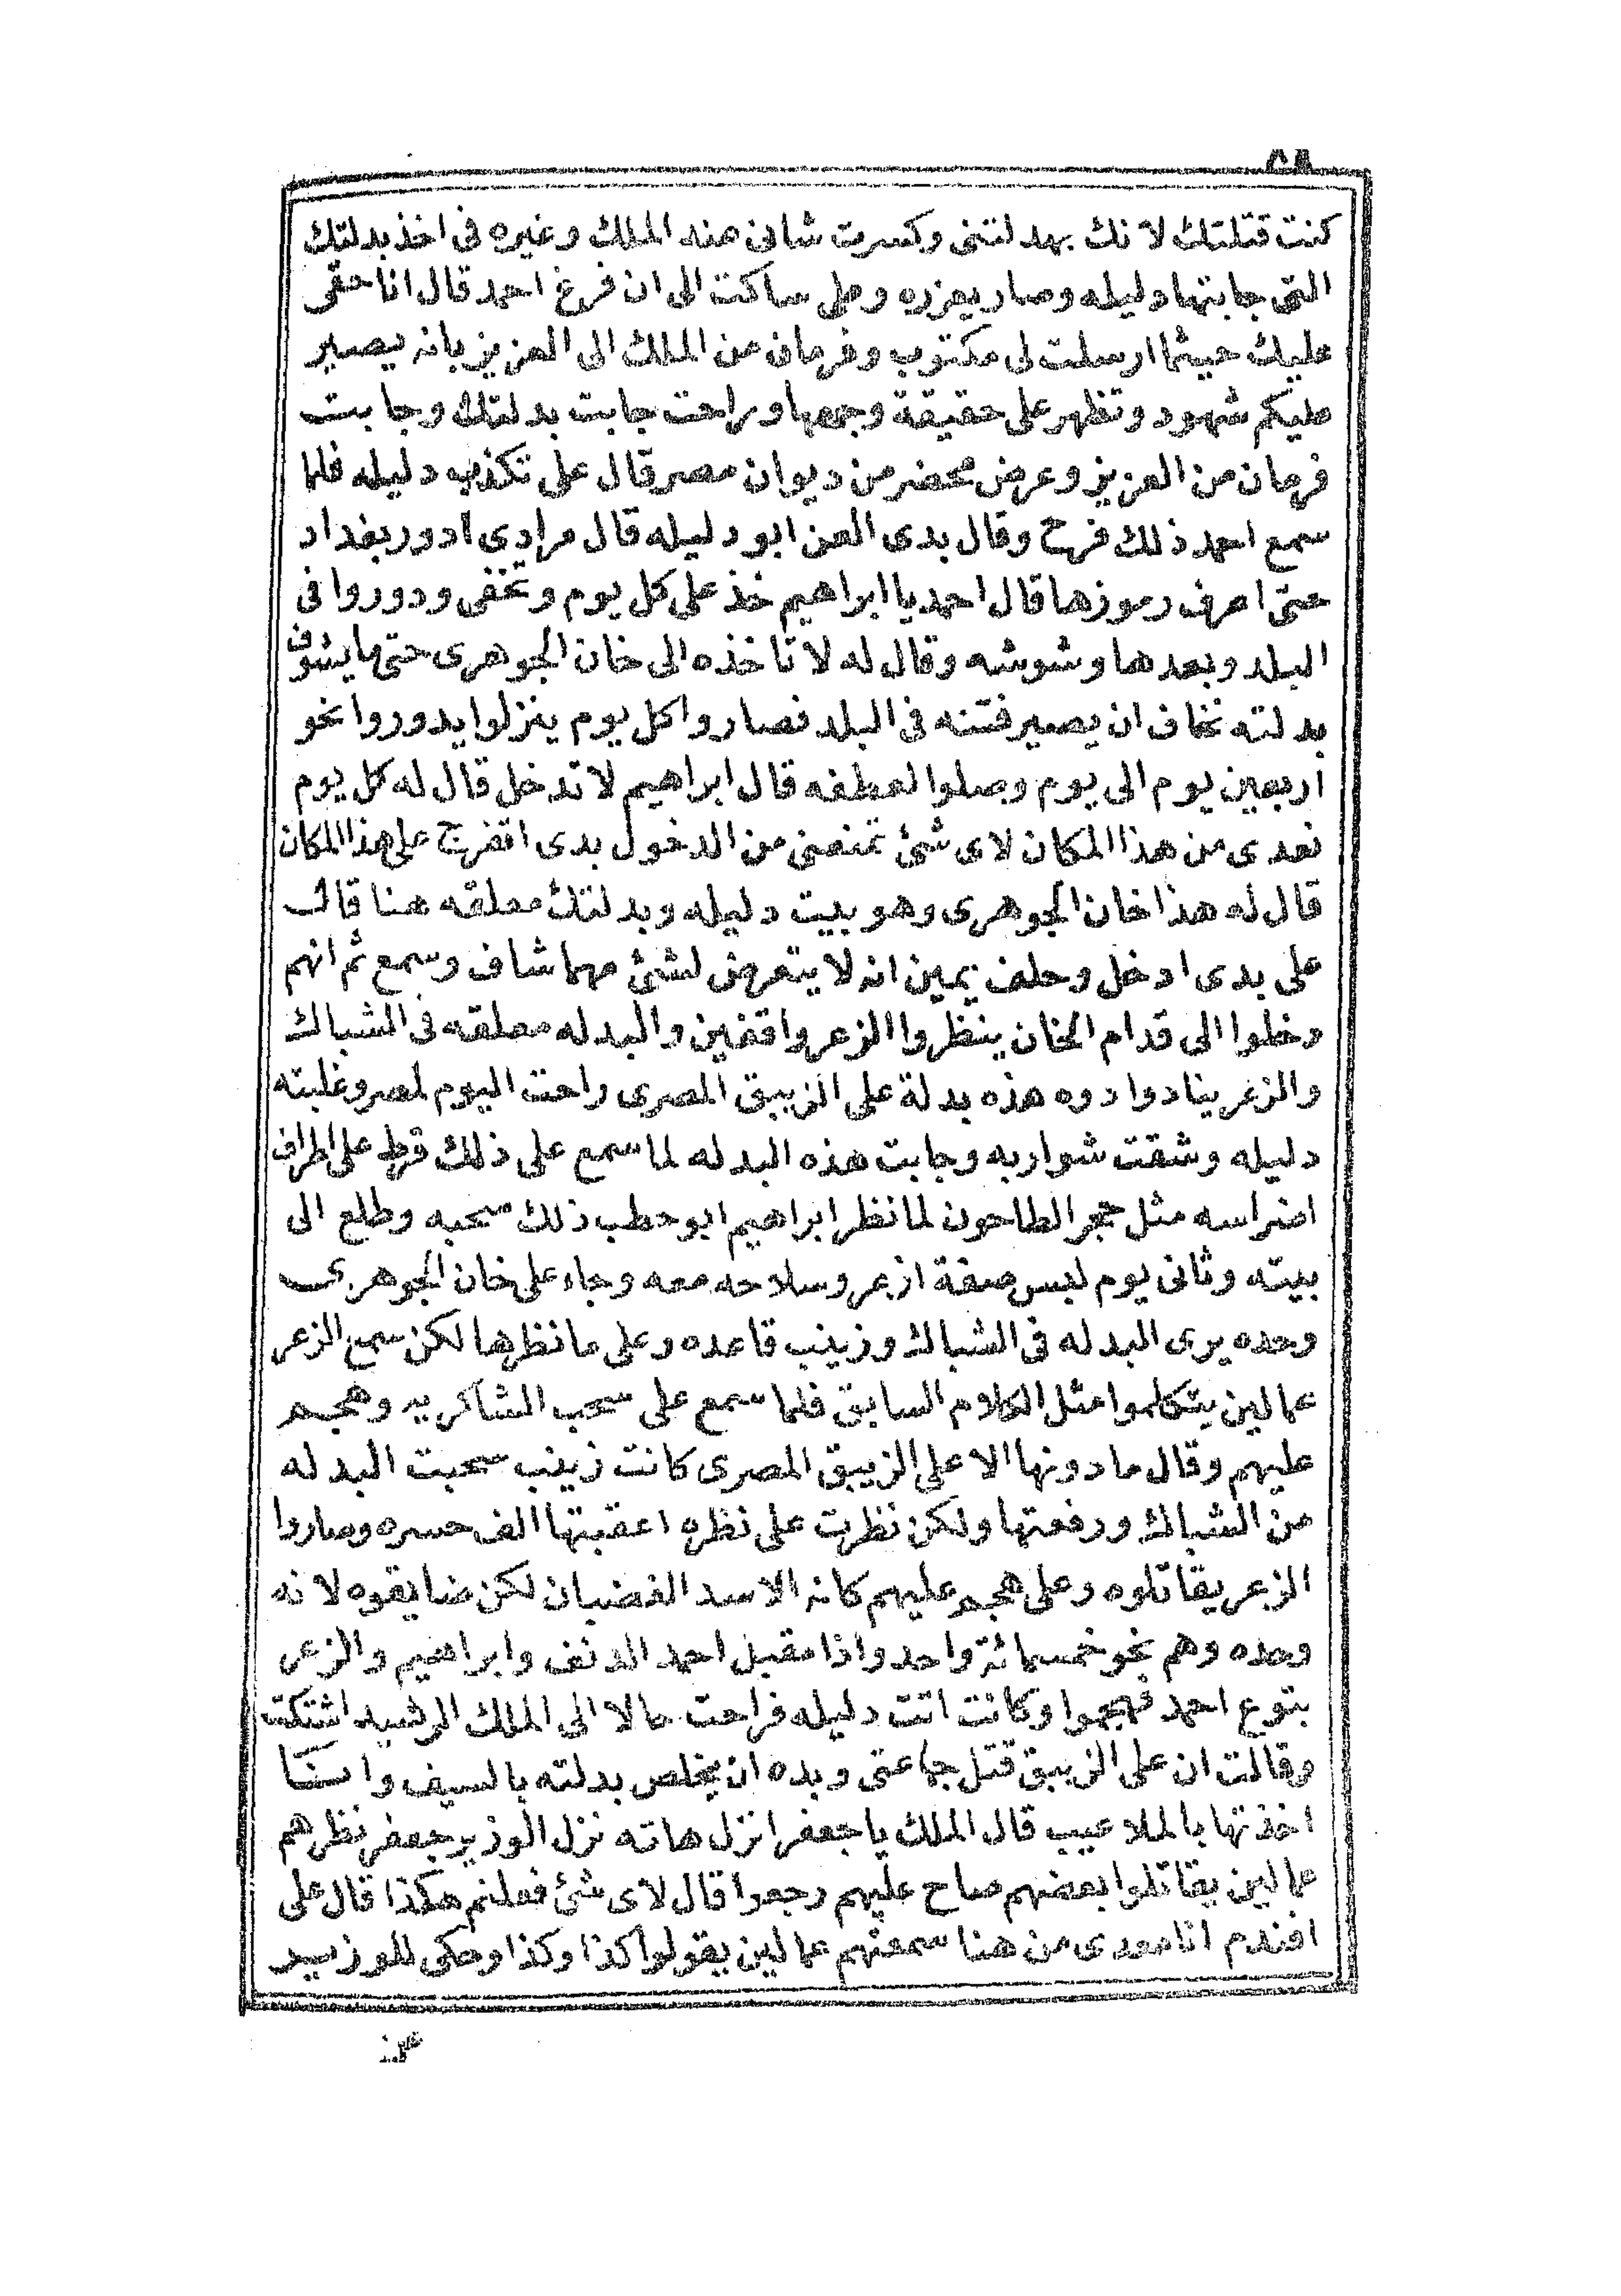 ٥٨
كنت قتلتك لانك بهدلتنى وكسرت شانى عنه الملك وغيره فى اخذ بدلتك
التى جابتها دليله وصار يعزره وعلى ساكت الى ان فرغ احمد قال انا حقى
عليك حيثما ارسلت لى مكتوب وفرمان من الملك الى العزيز بانه يصير
عليكم شهود وتظهر على حقيقة وجهها وراحت جابت بدلتك وجابت
فرمان من العزيز وعرض محضر من ديوان مصر قال على تكذب دليله فلما
سمع احمد ذلك فرح وقال بدى العن ابو دليله قال مرادى ادور بغداد
حتى اعرف رموزها قال احمد يا ابراهيم خذ على كل يوم وتخفى ودوروا فى
البلد وبعدها وشوشه وقال له لا تاخذه الى خان الجوهرى حتى ما يشوف
بدلته نخاف ان يصير فتنه فى البلد فصاروا كل يوم ينزلوا يدوروا نحو
اربعين يوم الى يوم وصلوا لعطفه قال ابراهيم لا تدخل قال له كل يوم
نعدى من هذا المكان لاى شئ تمنعنى من الدخول بدى اتفرج على هذا المكان
قال له هذا خان الجوهرى وهو بيت دليله وبدلتك معلقه هنا قال
على بدى ادخل وحلف يمين انه لا يتعرض لشئ مهما شاف وسمع ثم انهم
دخلوا الى قدام الخان ينظروا الزعر واقفين والبدله معلقه فى الشباك
والزعر ينادوا دوه هذه بدلة على الزيبق المصرى راحت اليوم لمصر وغلبته
دليله وشقت شواربه وجابت هذه البدله لما سمع على ذلك قرط على اطراف
اضراسه مثل حجر الطاحون لما نظر ابراهيم ابو حطب ذلك سحبه وطلع الى
بيته وثانى يوم لبس صفة ازعر وسلاحه معه وجاء على خان الجوهرى
وحده يرى البدله فى الشباك وزينب قاعده وعلى ما نظرها لكن سمع الزعر
عمالين يتكلموا مثل الكلام السابق فلما سمع على سحب الشاكريه وهجم
عليهم وقال ما دونها الا على الزيبق المصرى كانت زينب سحبت البدله
من الشباك ورفعتها ولكن نظرت على نظره اعقبتها الف حسره وصاروا
الزعر يقاتلوه وعلى هجم عليهم كانه الاسد الغضبان لكن ضايقوه لانه
وحده وهم نحو خمسمائة واحد واذا مقبل احمد الدنف وابراهيم والزعر
بتوع احمد فهجموا وكانت اتت دليله فراحت حالا الى الملك الرشيد اشتكت
وقالت ان على الزيبق قتل جماعتى وبده ان يخلص بدلته بالسيف وانا
اخذتها بالملاعيب قال الملك يا جعفر انزل هاته نزل الوزير جعفر نظرهم
عمالين يقاتلوا بعضهم صاح عليهم رجعوا قال لاى شئ فعلتم هكذا قال على
افندم انا معدى من هنا سمعتهم عمالين يقولوا كذا وكذا وحكى للوزير
عن